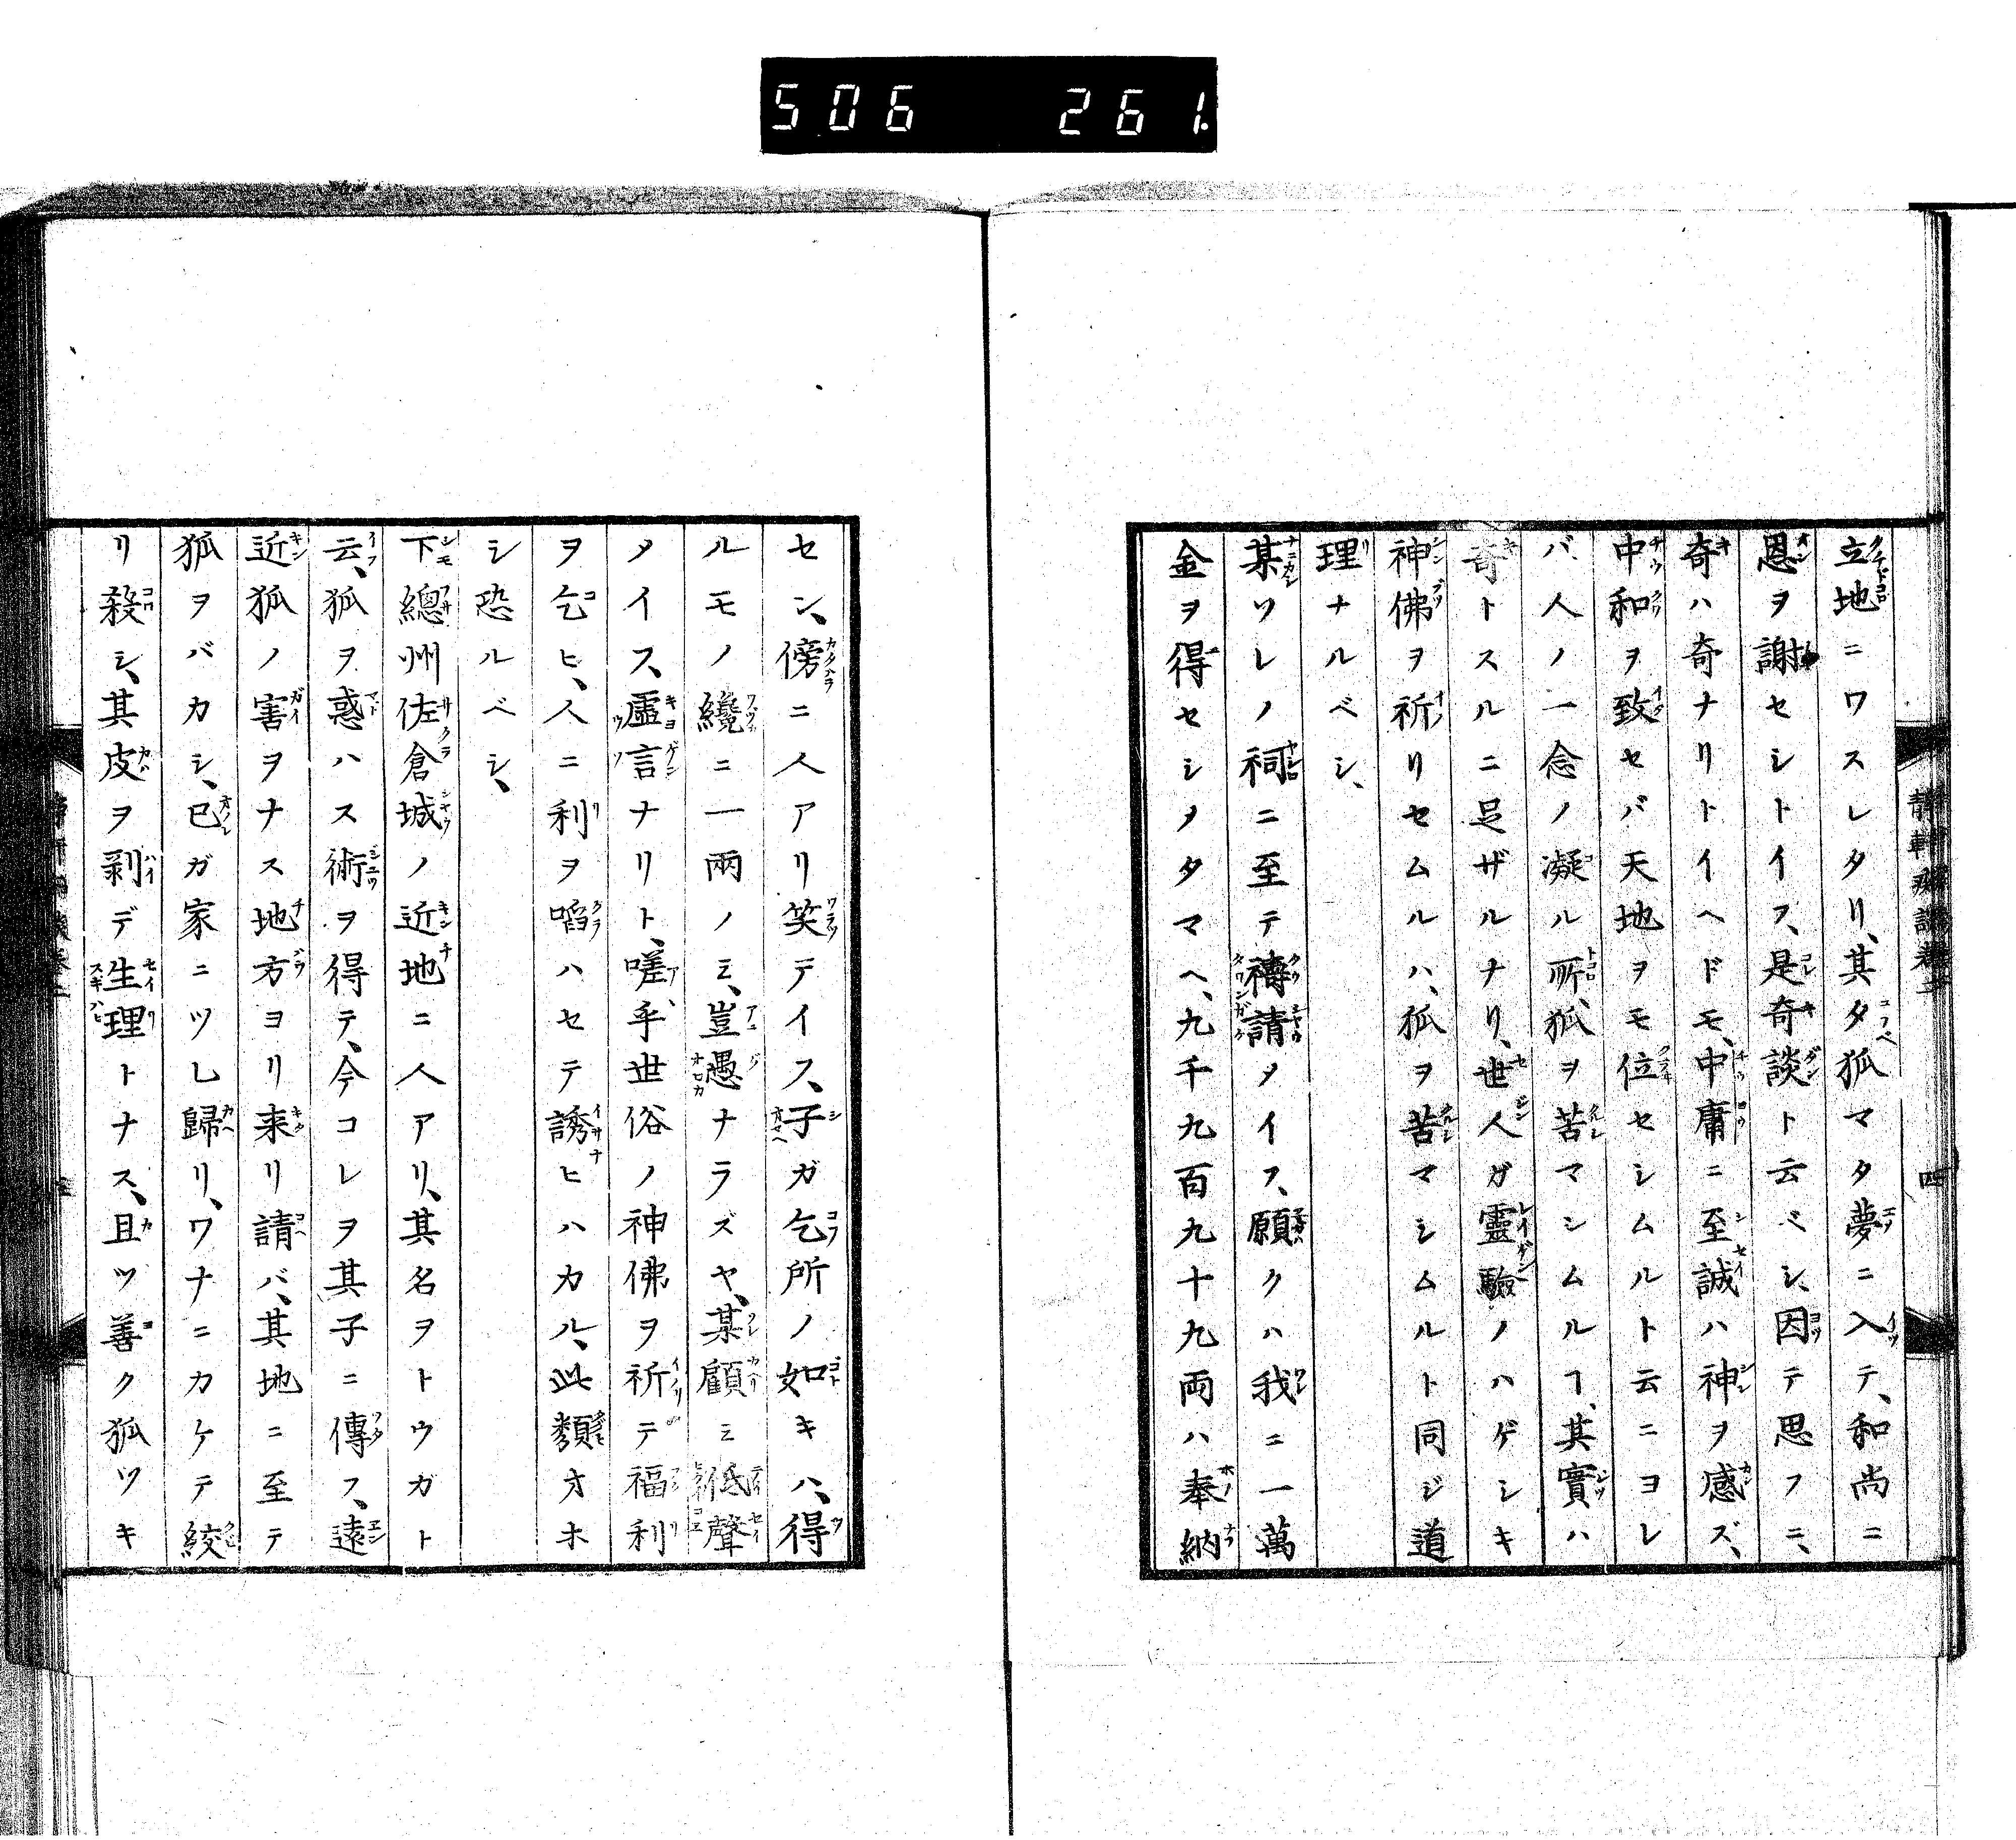 506 261.
立地ニワスレタリ、其夕狐マタ夢ニ入テ、和尚ニ
恩ヲ謝セシトイフ、是奇談ト云ベシ、因テ思フニ、
奇ハ奇ナリトイヘドモ、中庸ニ至誠ハ神ヲ感ズ、
中和ヲ致セバ天地ヲモ位セシムルト云ニヨレ
バ、人ノ一念ノ凝ル所、狐ヲ苦マシムルヿ、其實ハ
奇トスルニ足ザルナリ、世人ガ靈驗ノハゲシキ
神佛ヲ祈リセムルハ、狐ヲ苦マシムルト同ジ道
理ナルベシ、
某ソレノ祠ニ至テ禱請メイフ、願クハ我ニ一萬
金ヲ得セシメタマヘ、九千九百九十九両ハ奉納
セン、傍ニ人アリ笑テイス、子ガ乞所ノ如キハ、得
ルモノ纔ニ一兩ノミ、豈愚ナラズヤ、某顧ミ低聲
メイス、虛言ナリト、嗟乎世俗ノ神佛ヲ祈テ福利
ヲ乞ヒ、人ニ利ヲ啗ハセテ誘ヒハカル、此類オホ
シ恐ルベシ、
下總州佐倉城ノ近地ニ人アリ、其名ヲトウガト
云、狐ヲ惑ハス術ヲ得テ、今コレヲ其子ニ傳フ、遠
近狐ノ害ヲナス地方ヨリ来リ請バ、其地ニ至テ
狐ヲバカシ、己ガ家ニツレ歸リ、ワナニカケテ絞
リ殺シ、其皮ヲ剥デ生理トナス、且ツ善ク狐ツキ